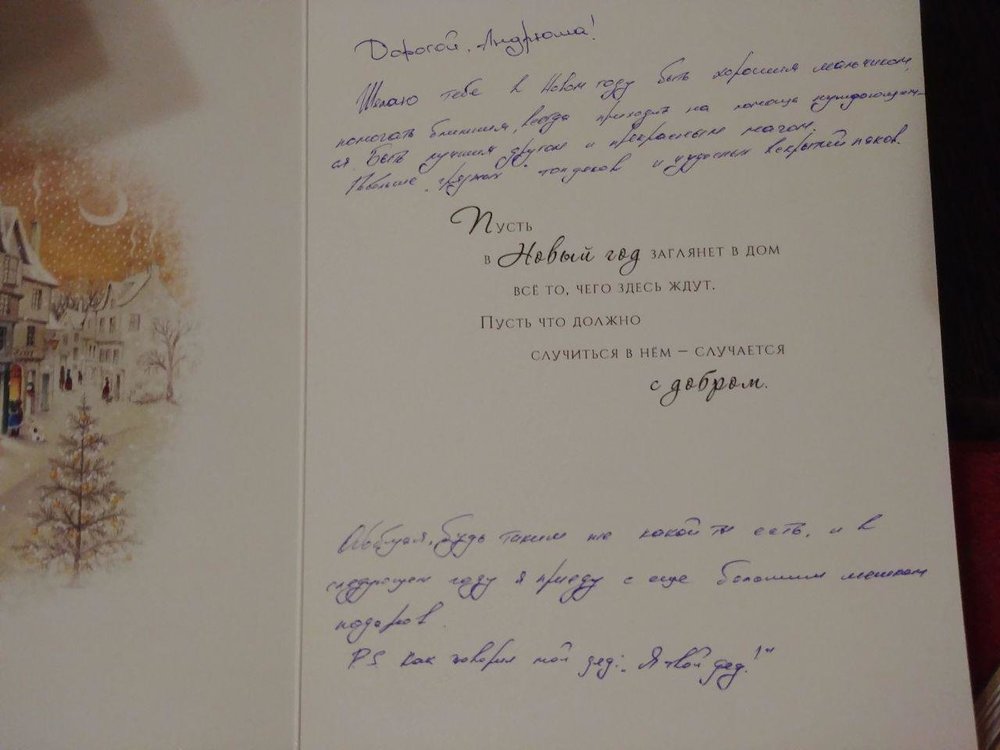 Дорогой, Андрюша!
Желаю тебе в Новом году быть хорошим мальчиком,
помогать ближним, всегда приходить на помощь нуждающим-
ся. Быть лучшим другом и прекрасным магом.
Побольше "грязных" топдеков и чудесных вскрытий паков.
Пусть
в Новый год заглянет в дом
всё то, чего здесь ждут.
Пусть что должно
случиться в нём – случается
с добром.
будь таким же какой ты есть, и в
следующем году я приеду с еще большим мешком
подарков.
P.S. Как говорил мой дед: "Я твой дед!"